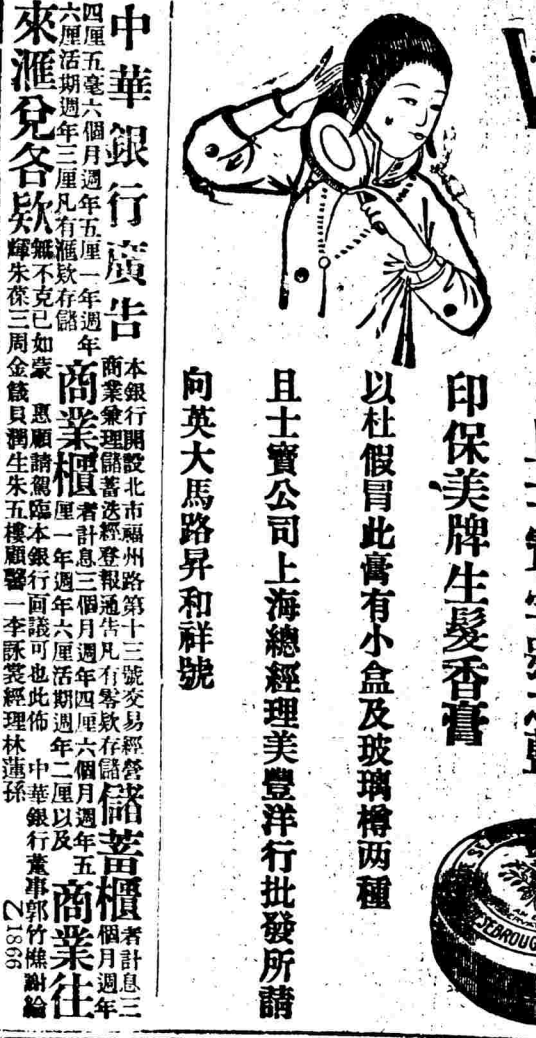 印保美牌生髮香膏
以杜假冒此膏有小盒及玻璃樽两種
且士寶公司上海總經理美豐洋行批發所請
向英大馬路昇和祥號
SEBROUG
中華銀行廣告
本銀行開設北市福州路第十三號交易經營
商業兼理儲蓄迭經登報通告凡有零欵存儲
儲蓄櫃
者計息三
個月週年
四厘五毫六個月週年五厘一年週年
六厘活期週年三厘凡有滙欵存儲
商業櫃
者計息三個月週年四厘六個月週年五
厘一年週年六厘活期週年二厘以及
商業往
來滙兌各欵
無不克已如蒙 惠顧請駕臨本銀行面議可也此佈 中華銀行董事郭竹樵謝綸
輝朱葆三周金箴貝潤生朱五樓顧馨一李詠裳經理林蓮孫
Z1866